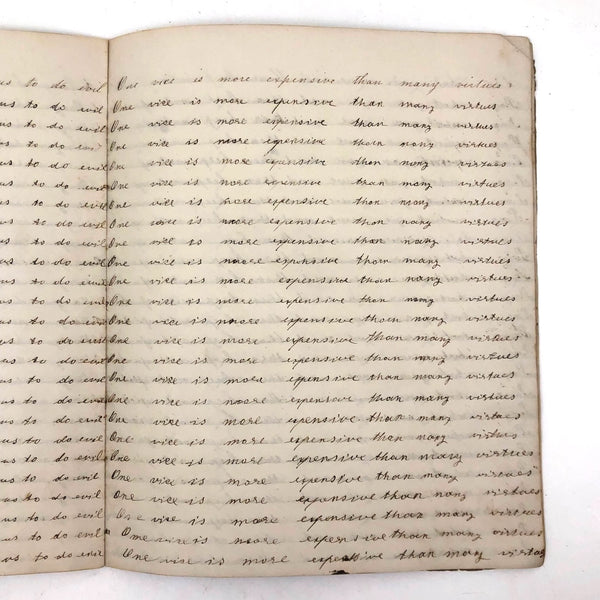 us to do evil
us to do evil
us to do evil
us to do evil
us to do evil
us to do evil
us to do evil
us to do evil
us to do evil
us to do evil
us to do evil
us to do evil
us to do evil
us to do evil
us to do evil
us to do evil
us to do evil
us to do evil
us to do evil
us to do evil
us to do evil
us to do evil
us to do evil
us to do evil
us to do evil
One vice is more expensive than many virtues
One vice is more expensive than many virtues
One vice is more expensive than many virtues
One vice is more expensive than many virtues
One vice is more expensive than many virtues
One vice is more expensive than many virtues
One vice is more expensive than many virtues
One vice is more expensive than many virtues
One vice is more expensive than many virtues
One vice is more expensive than many virtues
One vice is more expensive than many virtues
One vice is more expensive than many virtues
One vice is more expensive than many virtues
One vice is more expensive than many virtues
One vice is more expensive than many virtues
One vice is more expensive than many virtues
One vice is more expensive than many virtues
One vice is more epensive than many virtues
One vice is more epensive than many virtues
One vice is more expensive than many virtues
One vice is more expensive than many virtues
One vice is more expensive than many virtues
One vice is more expensive than many virtues
One vice is more expensive than many virtues
One vice is more expensive than many virtues